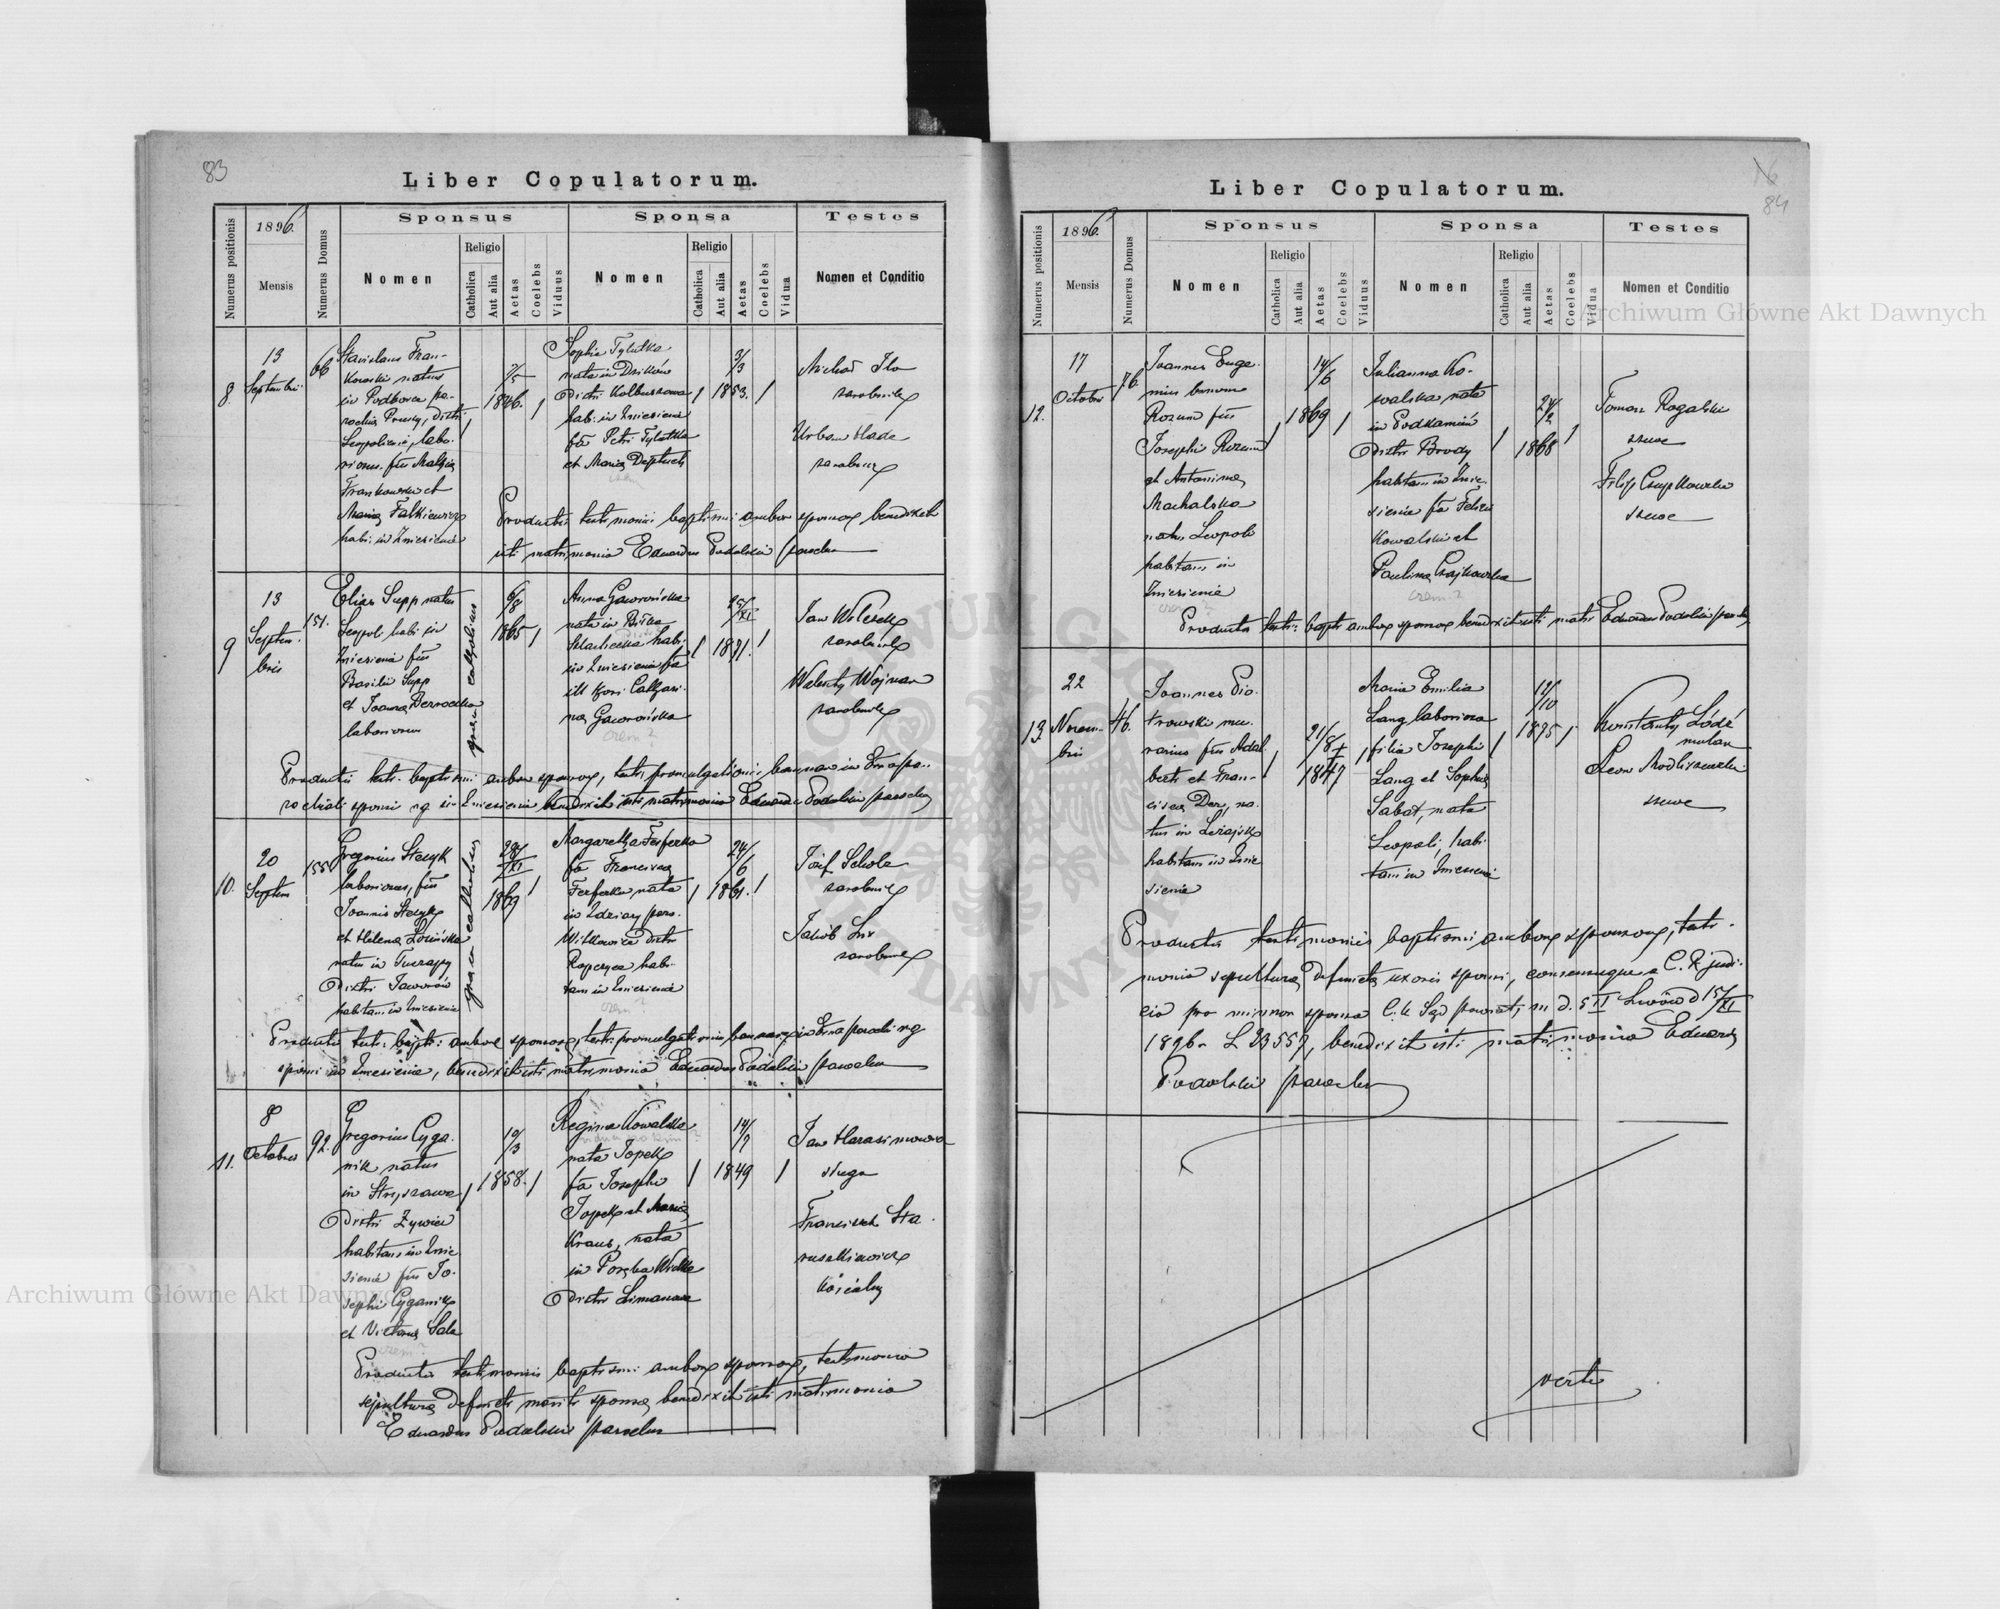 83
Liber Copulatorum.
Numerus positionis
1896.
Mensis
Numerus Domus
Sponsus
Nomen
Religio
Catholica
Aut alia
Aetas
Coelebs
Viduus
Sponsa
Nomen
Religio
Catholica
Aut alia
Aetas
Coelebs
Vidua
Testes
Nomen et Conditio
8.
13
Septembris
66
Stanislaus Fran-
kowski natus
in Podborce pa-
rochia Prusy, Distri.
Leopoliensi, labo-
riosus, fius Mathia
Frankowski et
Maria Falkiewicz
habi. in Zniesienie
2/5
1846.
Sophia Tylutka
nata in Dzikow
Distri Kolbuszowa
habi. in Zniesienie
fa Petri Tylutka
et Maria
3/3
1853.
Michał
zarobnik
Urban
zarobnik
Productis testimoniis baptismi ambor sponsor benedixit
isti matrimonio Eduardus Podolski parochus
9
13
Septem-
bris
151.
Elias Supp natus
Leopoli habi in
Zniesienie fius
Basilii Supp
et Joanna
laboriosus
graeco catholicus
6/8
1865
Anna Gaworońska
nata in Biłka
Szlachecka habi.
in Zniesienie fa
ill.
Gaworońska
crem?
25/XI
1871.
Jan
zarobnik
Walenty Wojnar
zarobnik
Productis testi. baptismi ambor sponsor, testi promulgationis bannor in
rochiali sponsi in Zniesienie benedixit isti matrimonio Eduardus Podolski parochus
10.
20
Septem
155
Gregorius Stecyk
laboriosus, fius
Joannis Stecyk
et Helena Łosińska
natus in
Distri Jaworów
habitans in Zniesienie
graeco catholicus
28/XI
1869
Margaretha Ferferko
fa Francisca
Ferferko nata
in Zdziary paro.
Witkowice Distri
Ropczyce habi-
tans in Zniesienie
crem?
24/6
1861.
Józef
zarobnik
Jakób
zarobnik
Productis testi. bapti. ambor sponsor, testi promulgationis bannor in
sponsi in Zniesienie, benedixit isti matrimonio Eduardus Podolski parochus
11.
8
Octobris
92.
Gregorius Cyga-
nik natus
in Stryszawa
Distri Żywiec
habitans in Znie-
sienie fius Jo-
sephi Cyganik
et Victoria Sala
crem?
10/3
1858.
Regina Kowalska
nata Topek
fa Josephi
Topek et Maria
Kraus, nata
in Poręba Wielka
Distri Limanowa
14/7
1849
Jan Harasimowicz
sługa
Franciszek Sta-
kościelny
Productis testimoniis baptismi ambor sponsor, testimonio
sepultura defuncti mariti sponsa, benedixit isti matrimonio
Eduardus Podolski parochus
16
84
Liber Copulatorum.
Numerus positionis
1896.
Mensis
Numerus Domus
Sponsus
Nomen
Religio
Catholica
Aut alia
Aetas
Coelebs
Viduus
Sponsa
Nomen
Religio
Catholica
Aut alia
Aetas
Coelebs
Vidua
Testes
Nomen et Conditio
12.
17
Octobris
76.
Joannes Euge-
nius binom
Rozum fius
Josephi Rozum
et Antonina
Machalska
natus Leopoli
habitans in
Zniesienie
14/6
1869
Julianna Ko-
walska nata
in Podkamień
Distri Brody
habitans in Znie-
sienie fa Felicis
Kowalski et
Paulina Czajkowska
crem?
24/2
1868
Tomasz Rogalski
szewc
Filip Czupkowski
szewc
Productis testi. bapti ambor sponsor benedixit isti matri Eduardus Podolski parochus
13.
22
Novem-
bris
46.
Joannes Pio-
trowski mu-
rarius fius Adal-
berti et Fran-
cisca Der, na-
tus in Leżajsk
habitans in Znie
sienie
21/8
1847
Maria Emilia
Lang laboriosa
filia Josephi
Lang et Sophia
Sabat, nata
Leopoli, habi-
tans in Zniesienie
12/10
1875
Konstanty Łódź
mularz
Leon Modliszewski
szewc
Productis testimoniis baptismi ambor sponsor, testi-
monio sepultura defuncta uxoris sponsi, consensuque a C. R. judi-
cio pro minoren sponsa C. k. Sąd powiat. m. d. S II Lwów d 15/XI
1896 L 23557, benedixit isti matrimonio Eduardus
Podolski parochus
verte
Archiwum Główne Akt Dawnych
Archiwum Główne Akt Dawnych